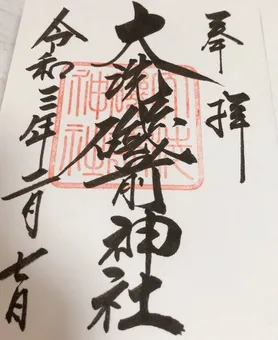 奉拝
大洗磯前神社
令和三年二月七日
神社